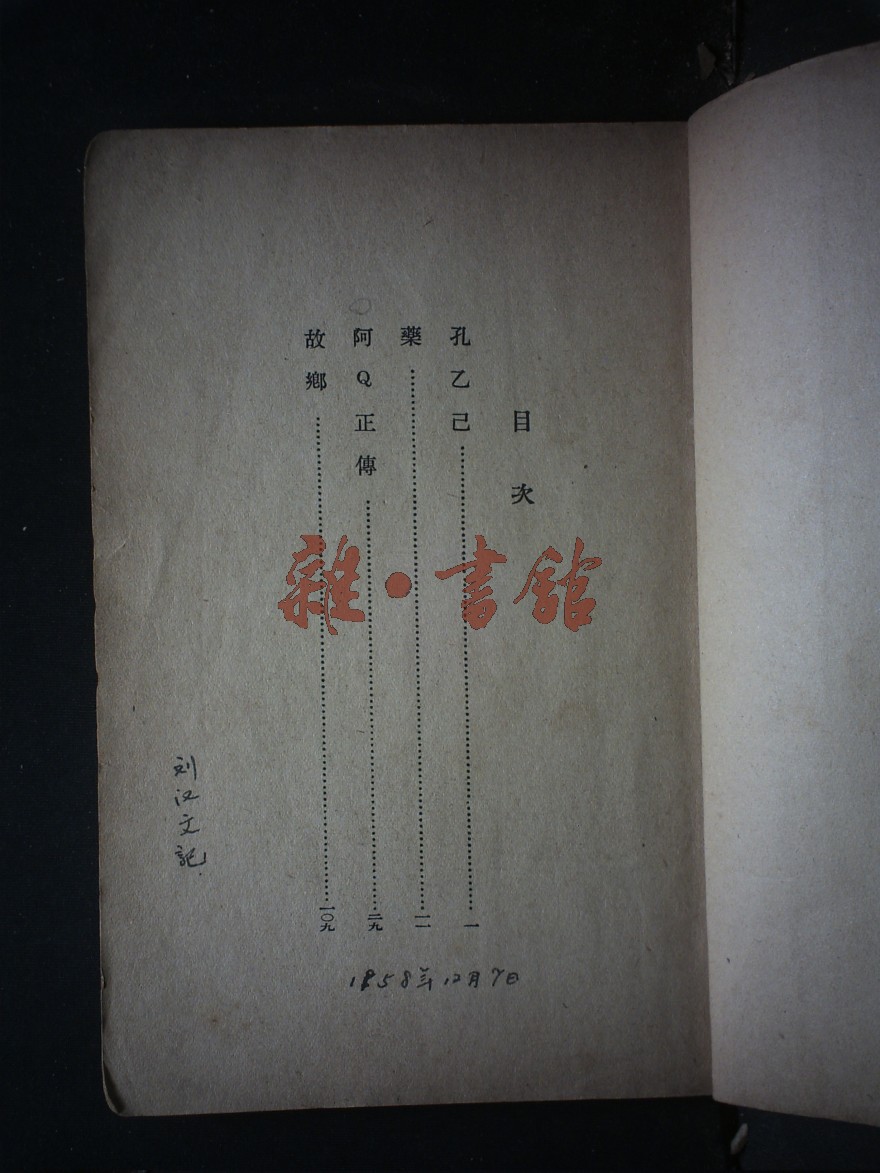 目次
孔乙己……一
藥……一一
阿Q正傳……二九
故鄉……一〇九
刘汉文記
1958年12月7日
雜·書舘